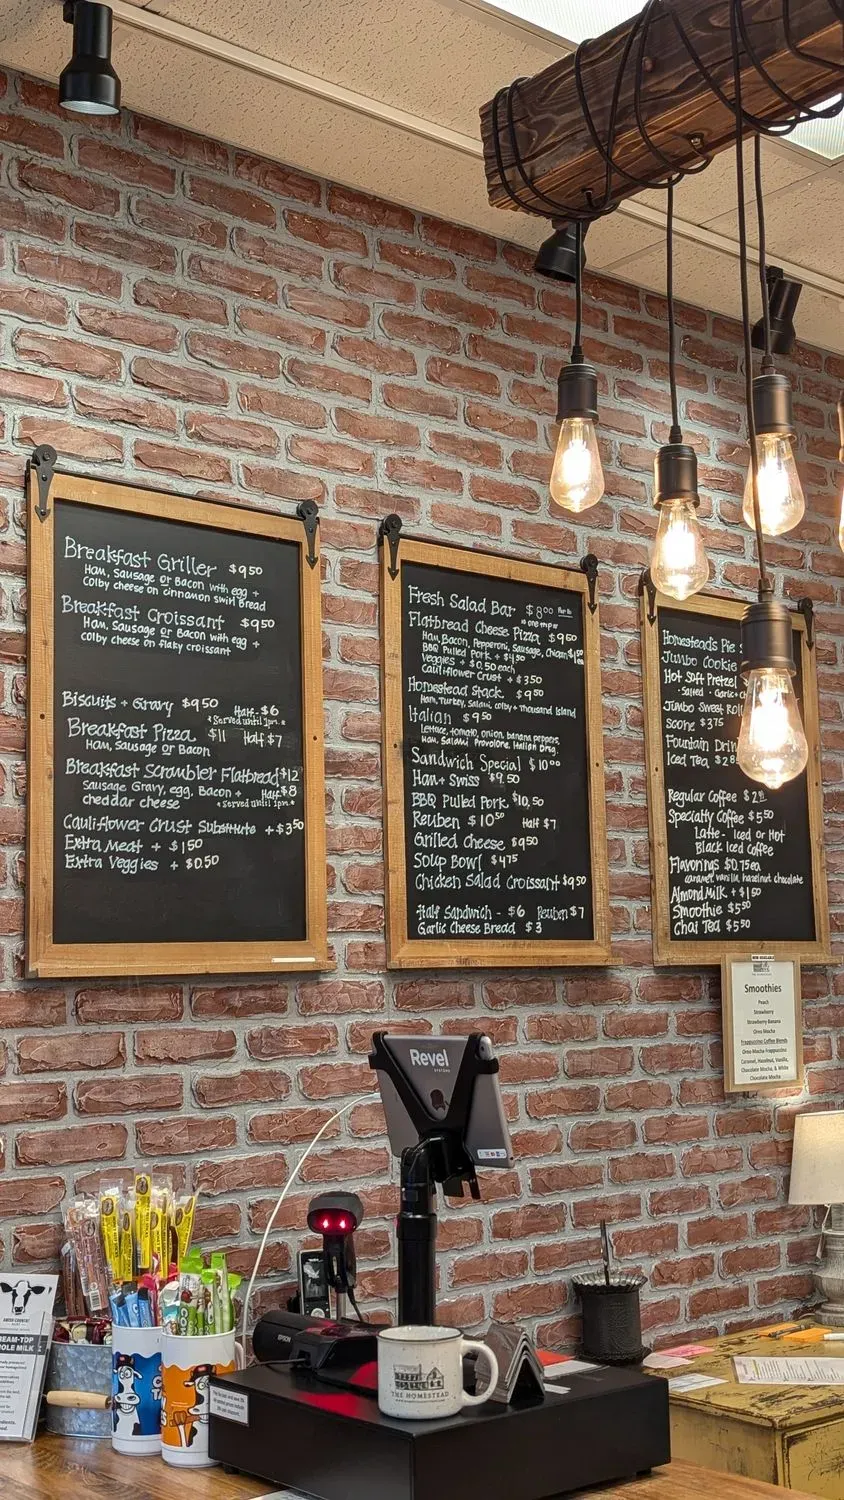 Breakfast Griller $9.50
Ham, Sausage or Bacon with egg +
Colby cheese on cinnamon swirl Bread
Breakfast Croissant $9.50
Ham, Sausage or Bacon with egg +
Colby cheese on flaky croissant
Biscuits + Gravy $9.50 Half-$6
*Served until 1pm.*
Breakfast Pizza $11 Half $7
Ham, Sausage or Bacon
Breakfast Scrambler Flatbread $12
Sausage Gravy, egg, Bacon + Half $8
cheddar cheese *Served until 1pm.*
Cauliflower Crust Substitute +$3.50
Extra Meat + $1.50
Extra Veggies + $0.50
Fresh Salad Bar $8.00
*one trip*
Flatbread Cheese Pizza $9.50
Ham, Bacon, Pepperoni, Sausage, Chicken
BBQ Pulled Pork + $4.50
Veggies + $0.50 each
Cauliflower Crust + $3.50
Homestead Stack $9.50
Ham, Turkey, Salami, Colby + Thousand Island
Italian $9.50
Lettuce, tomato, onion, banana peppers,
Ham, Salami Provolone, Italian Drsg.
Sandwich Special $10.00
Ham + Swiss $9.50
BBQ Pulled Pork $10.50
Reuben $10.50 Half $7
Grilled Cheese $9.50
Soup Bowl $4.75
Chicken Salad Croissant $9.50
Half Sandwich - $6 Reuben $7
Garlic Cheese Bread $3
Homestead's Pie
Jumbo Cookie
Hot Soft Pretzel
- Salted - Garlic +
Jumbo Sweet Roll
Scone $3.75
Fountain Drin
Iced Tea $2
Regular Coffee $2
Specialty Coffee $5.50
Latte - Iced or Hot
Black Iced Coffee
Flavorings $0.75 ea
caramel, vanilla, hazelnut, chocolate
Almond Milk + $1.50
Smoothie $5.50
Chai Tea $5.50
NOW AVAILABLE
Smoothies
Peach
Strawberry
Strawberry-Banana
Oreo Mocha
Frappuccino Coffee Blends
Oreo Mocha Frappuccino
Caramel, Hazelnut, Vanilla,
Chocolate Mocha, & White
Chocolate Mocha
Revel
SYSTEMS
EPSON
THE HOMESTEAD
EAM-TOP
OLE MILK